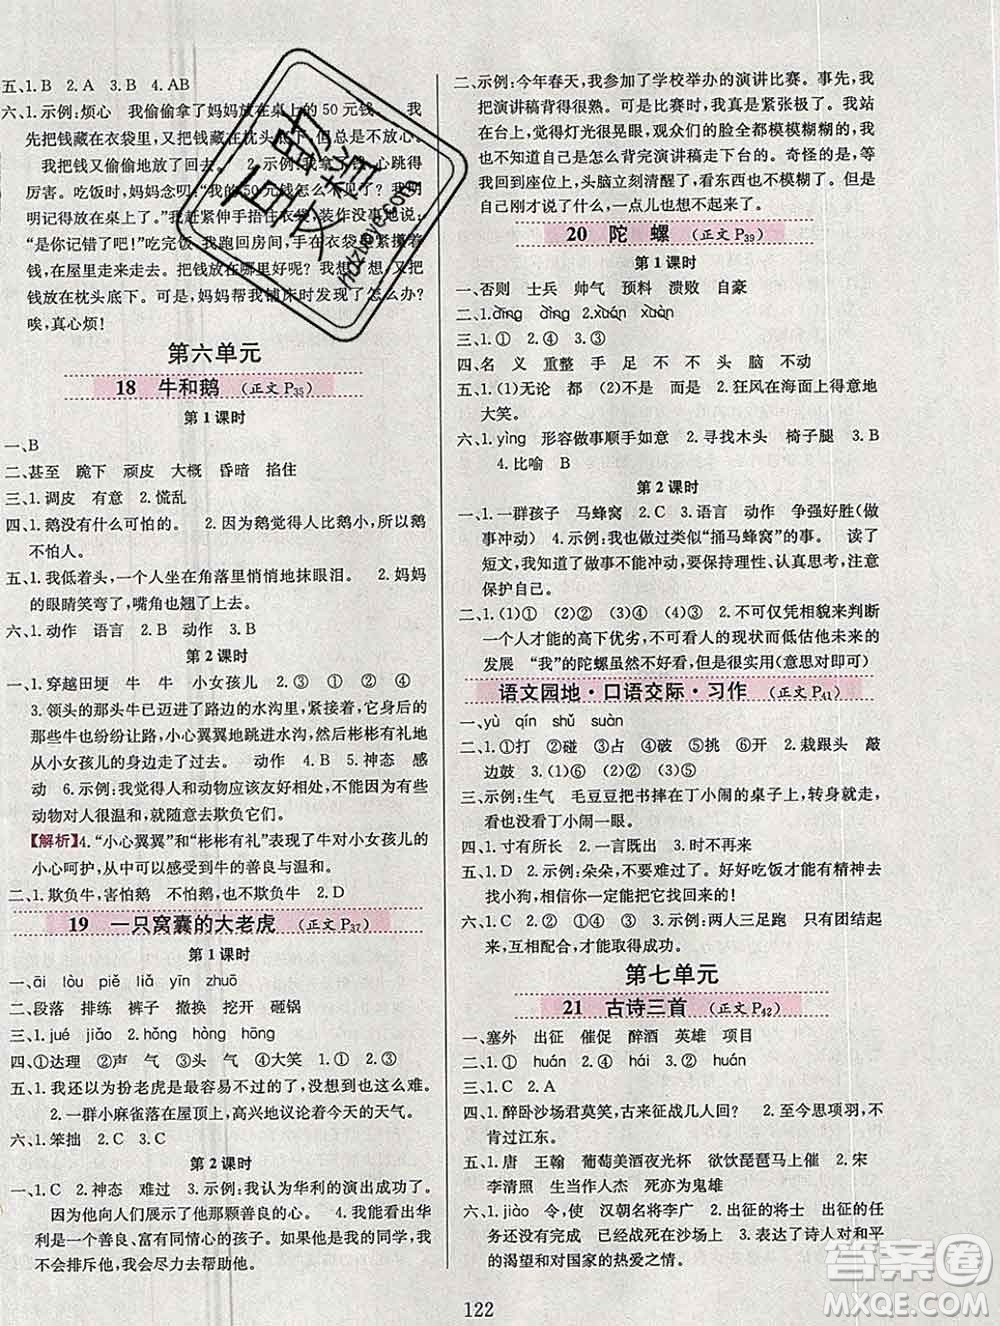 五、1.B 2.A 3.B 4.AB
六、1.示例:烦心 我偷偷拿了妈妈放在桌上的50元钱 我
先把钱藏在衣袋里,又把钱藏到枕头底下,但总是不放心。
我把钱又偷偷地放了回去。 2.示例:我拿了钱,心跳得
厉害。吃饭时,妈妈念叨:“我的50元钱怎么不见了?我明
明记得放在桌上了。”我赶紧伸手捂住衣袋,装作没事地说:
“是你记错了吧!”吃完饭,我跑回房间,手在衣袋里紧攥着
钱,在屋里走来走去,把钱放在哪里好呢?想了想,把
钱放在枕头底下。可是,妈妈帮我铺床时发现了怎么办?
唉,真心烦!
第六单元
18 牛和鹅 (正文P35)
第1课时
一、B
二、甚至 跪下 顽皮 大概 昏暗 掐住
三、1.调皮 有意 2.慌乱
四、1.鹅没有什么可怕的。 2.因为鹅觉得人比鹅小,所以鹅
不怕人。
五、1.我低着头,一个人坐在角落里悄悄地抹眼泪。 2.妈妈
的眼睛笑弯了,嘴角也翘了上去。
六、1.动作 语言 2.B 动作 3.B
第2课时
一、1.穿越田埂 牛 牛 小女孩儿 2.③ ④ ② ①
3.领头的那头牛已经下到了路边的水沟里,紧接着,后面
的牛也纷纷让路,小心翼翼地下到水沟,然后彬彬有礼地
从小女孩儿的身边走了过去。 动作 4.B 5.神态 感
动 6.示例:人类和动物应该友好相处,不能因为有些
动物对人很温和,就欺负它们。
【解析】4.“小心翼翼”和“彬彬有礼”表现了牛对小女孩儿的
小心呵护,从中可以感受到牛的善良与温和。
二、1.欺负牛,害怕鹅 不怕鹅,也不欺负牛 2.D
19 一只窝囊的大老虎 (正文P37)
第1课时
一、āi lòu piě liǎ yīn zhuō
二、段落 排练 裤子 撤换 挖开 砸锅
三、1.jué jiǎo 2.hǒng hòng hōng
四、①达理 ②声 气 ③头 气 ④大笑 ⑤头 气
五、1.我还以为扮老虎是最容易不过的了,我想得那么难。
2.一群小麻雀落在屋顶上,高兴地议论着今天的天气。
六、1.笨拙 2.C 3.C
第2课时
一、1.C 2.神态 难过 3.示例:我认为华利的演出成功了。
因为他向人们展示了他那颗善良的心。 4.我能看出华
利是一个善良、富有同情心的孩子。如果他是我的同学,我
不会排斥他,我会尽力去帮助他。
二、示例:今年春天,我参加了学校举办的演讲比赛。事先,我
把演讲稿背得很熟。可是比赛时,我真是紧张极了。我站
在台上,觉得灯光很晃眼,观众们的脸全都模模糊糊的。
我不知道自己是怎么背完演讲稿走下台的。奇怪的是,我
回到座位上,头脑立刻清醒了,看东西也不模糊了。可是
自己刚才讲了什么,一点儿也想不起来了。
20 陀螺 (正文P39)
第1课时
一、否则 士兵 帅气 预料 溃败 自豪
二、1.dīng dìng 2.xuán xuàn
三、1.① ② ④ 2.④ ③ ①
四、名 义 重整 手 足 不 不 头 脑 不动
五、1.(1)无论 都 (2)不是 而是 2.狂风在海面上得意地
大笑。
六、1.yìng 形容做事顺手如意 2.寻找木头 椅子腿 3.B
4.比喻 B
第2课时
一、1.一群孩子 马蜂窝 2.C 3.语言 动作 争强好胜(做
事冲动) 4.示例:我也做过类似“捅马蜂窝”的事。 读了
短文,我知道了做事不能冲动,要保持理性、动脑思考,注意
保护自己。
二、1.(1)① (2)② (3)③ (4)④ 2.不可仅凭相貌来判断
一个人才能的高下优劣,不可看人的现状而低估他未来的
发展 “我”的陀螺虽然不好看,但是获胜了(意思对即可)
语文园地·口语交际·习作 (正文P41)
一、yù qín shǔ suàn
二、1.①打 ②碰 ③占 ④挑 ⑤抢 2.栽跟头 敲
边鼓 3.(1)⑥ (2)③ (3)⑤
三、示例:生气 毛豆豆把书摔在丁小闹的桌子上,转身就走,
连看都没看丁小闹一眼。
四、1.寸有所长 2.一言既出 3.时不再来
五、1.D 2.示例:朵朵,不要难过了。好好吃饭才能有体力去
找小狗,相信你一定能把它找回来的!
六、1.C 2.② ①④ ③ 3.示例:两人三足跑 只有团结起
来,互相配合,才能取得成功。
第七单元
21 古诗三首 (正文P42)
一、塞外 出征 催促 醉酒 英雄 项目
二、1.① huán 2.④ hái ② huán
三、1.C 2.A
四、1.醉卧沙场君莫笑,古来征战几人回? 2.至今思项羽,不
肯过江东。
五、1.唐 王翰 葡萄美酒夜光杯 欲饮琵琶马上催 2.宋
李清照 生当作人杰 死亦为鬼雄
六、1.jiào 令,使 汉朝名将李广 2.出征的将士 出征的任
务还没有完成 已经战死在沙场上 3.表达了诗人对和平
的渴望和对国家的热爱之情。
122
直接发替
hdzuoye.com
答案圈
MXQE.COM